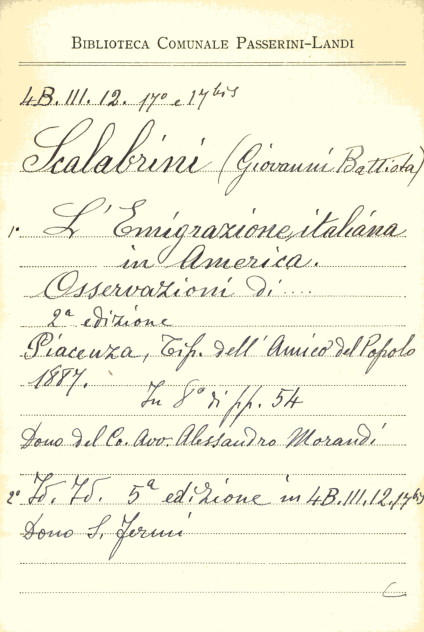 BIBLIOTECA COMUNALE PASSERINI-LANDI
4B. III. 12. 17° e 17bis
Scalabrini (Giovanni Battista)
1° L'Emigrazione italiana
in America.
Osservazioni di ....
2ª edizione
Piacenza, Tip. dell'Amico del Popolo
1887.
In 8° di pp. 54
Dono del Co. Avv. Alessandro Morandi
2° Id. Id. 5ª edizione in 4B. III. 12. 17bis
Dono S. Fermi
C